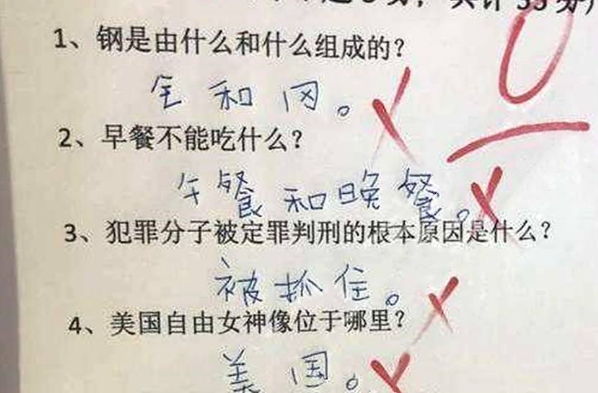 1、钢是由什么和什么组成的？
钅和冈。
0
2、早餐不能吃什么？
午餐和晚餐。
3、犯罪分子被定罪判刑的根本原因是什么？
被抓住。
4、美国自由女神像位于哪里？
美国。